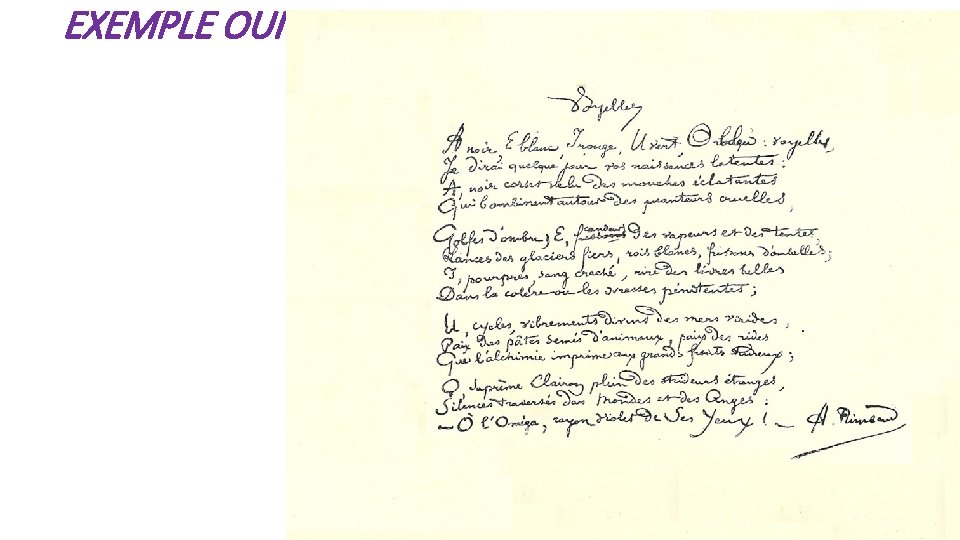 EXEMPLE OUI
Voyelles
A noir, E blanc, I rouge, U vert, O bleu : voyelles,
Je dirai quelque jour vos naissances latentes :
A, noir corset velu des mouches éclatantes
Qui bombinent autour des puanteurs cruelles,
Golfes d'ombre ; E, candeurs des vapeurs et des tentes,
Lances des glaciers fiers, rois blancs, frissons d'ombelles ;
I, pourpres, sang craché, rire des lèvres belles
Dans la colère ou les ivresses pénitentes ;
U, cycles, vibrements divins des mers virides,
Paix des pâtis semés d'animaux, paix des rides
Que l'alchimie imprime aux grands fronts studieux ;
O, Suprême Clairon plein des strideurs étranges,
Silences traversés des Mondes et des Anges :
— O l'Oméga, rayon violet de Ses Yeux ! — A. Rimbaud